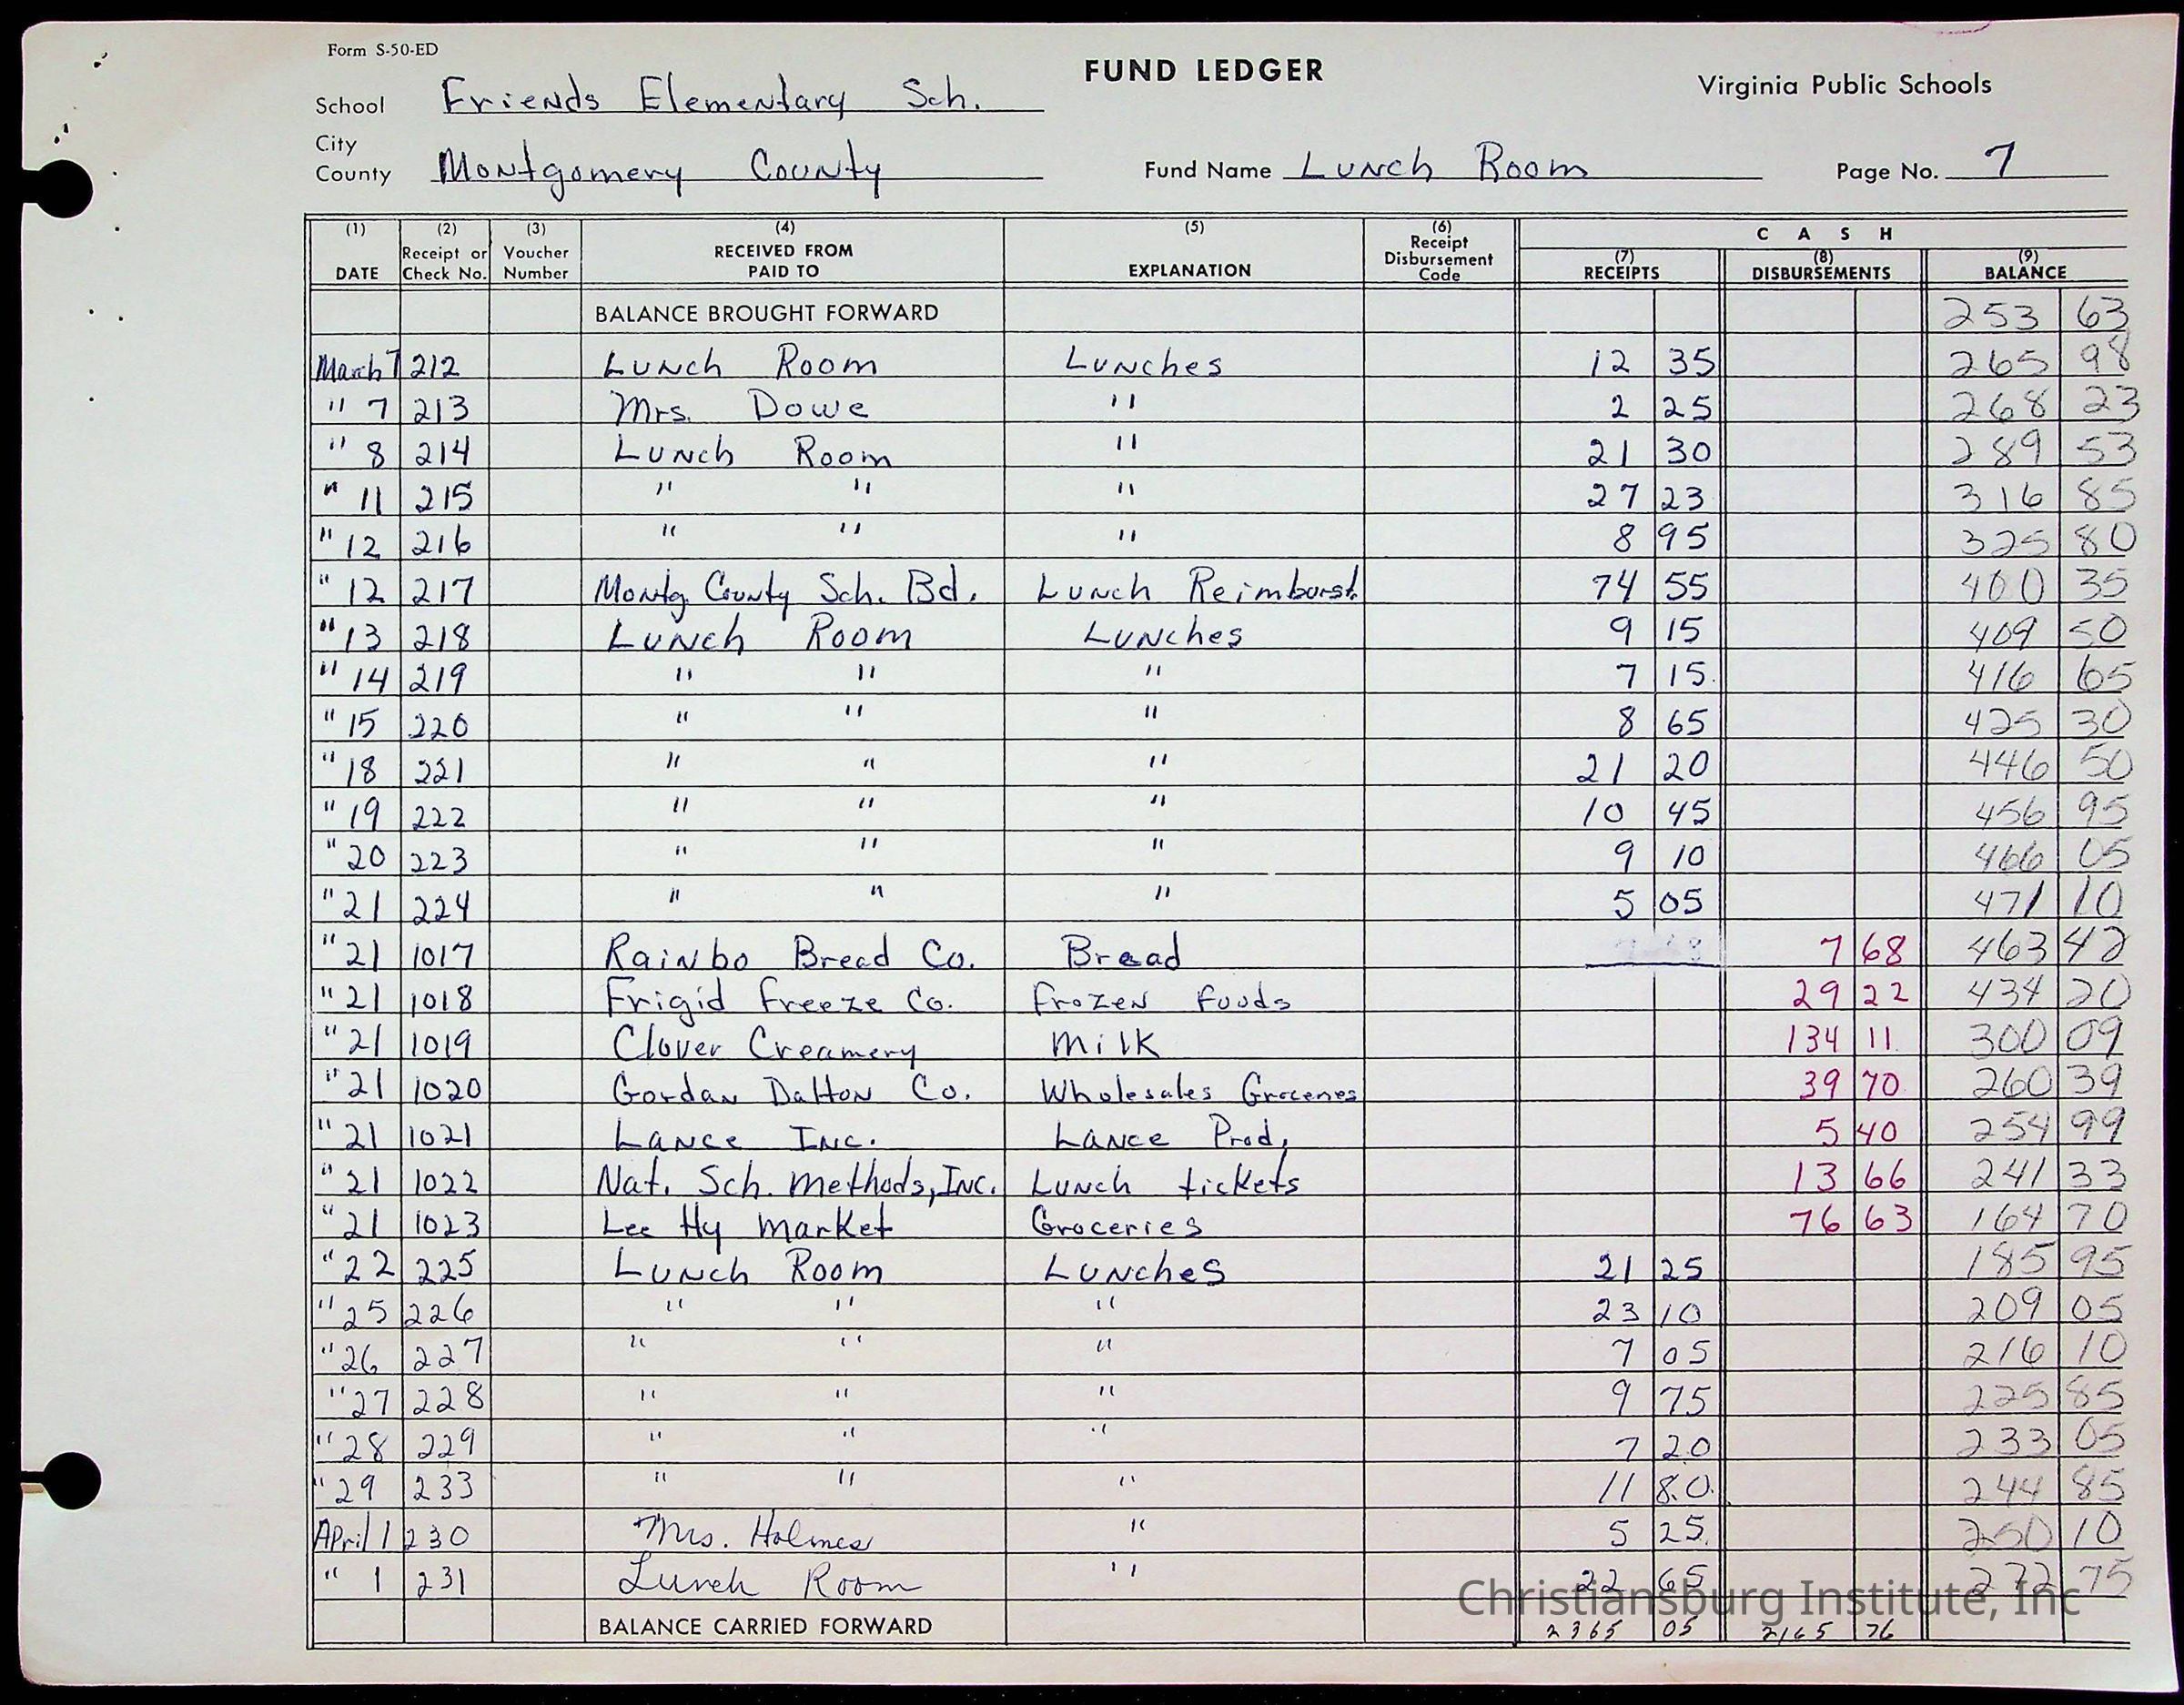 Form S-50-ED
FUND LEDGER
Virginia Public Schools
School Friends Elementary Sch.
City
County Montgomery County Fund Name Lunch Room Page No. 7
(1) DATE (2) Receipt or Check No. (3) Voucher Number (4) RECEIVED FROM PAID TO (5) EXPLANATION (6) Receipt Disbursement Code CASH (7) RECEIPTS (8) DISBURSEMENTS (9) BALANCE
BALANCE BROUGHT FORWARD 253 63
March 7 212 Lunch Room Lunches 12 35 265 98
" 7 213 Mrs. Dowe " 2 25 268 23
" 8 214 Lunch Room " 21 30 289 53
" 11 215 " " " 27 23 316 85
" 12 216 " " " 8 95 325 80
" 12 217 Montg. County Sch. Bd. Lunch Reimburst. 74 55 400 35
" 13 218 Lunch Room Lunches 9 15 409 50
" 14 219 " " " 7 15 416 65
" 15 220 " " " 8 65 425 30
" 18 221 " " " 21 20 446 50
" 19 222 " " " 10 45 456 95
" 20 223 " " " 9 10 466 05
" 21 224 " " " 5 05 471 10
" 21 1017 Rainbo Bread Co. Bread 7 68 463 42
" 21 1018 Frigid Freeze Co. Frozen Foods 29 22 434 20
" 21 1019 Clover Creamery Milk 134 11 300 09
" 21 1020 Gordan Dalton Co. Wholesales Groceries 39 70 260 39
" 21 1021 Lance Inc. Lance Prod. 5 40 254 99
" 21 1022 Nat. Sch. Methods, Inc. Lunch tickets 13 66 241 33
" 21 1023 Lee Hy Market Groceries 76 63 164 70
" 22 225 Lunch Room Lunches 21 25 185 95
" 25 226 " " " 23 10 209 05
" 26 227 " " " 7 05 216 10
" 27 228 " " " 9 75 225 85
" 28 229 " " " 7 20 233 05
" 29 233 " " " 11 80 244 85
April 1 230 Mrs. Holmes " 5 25 250 10
" 1 231 Lunch Room " 22 65 272 75
Christiansburg Institute, Inc
BALANCE CARRIED FORWARD 2365 05 2165 76